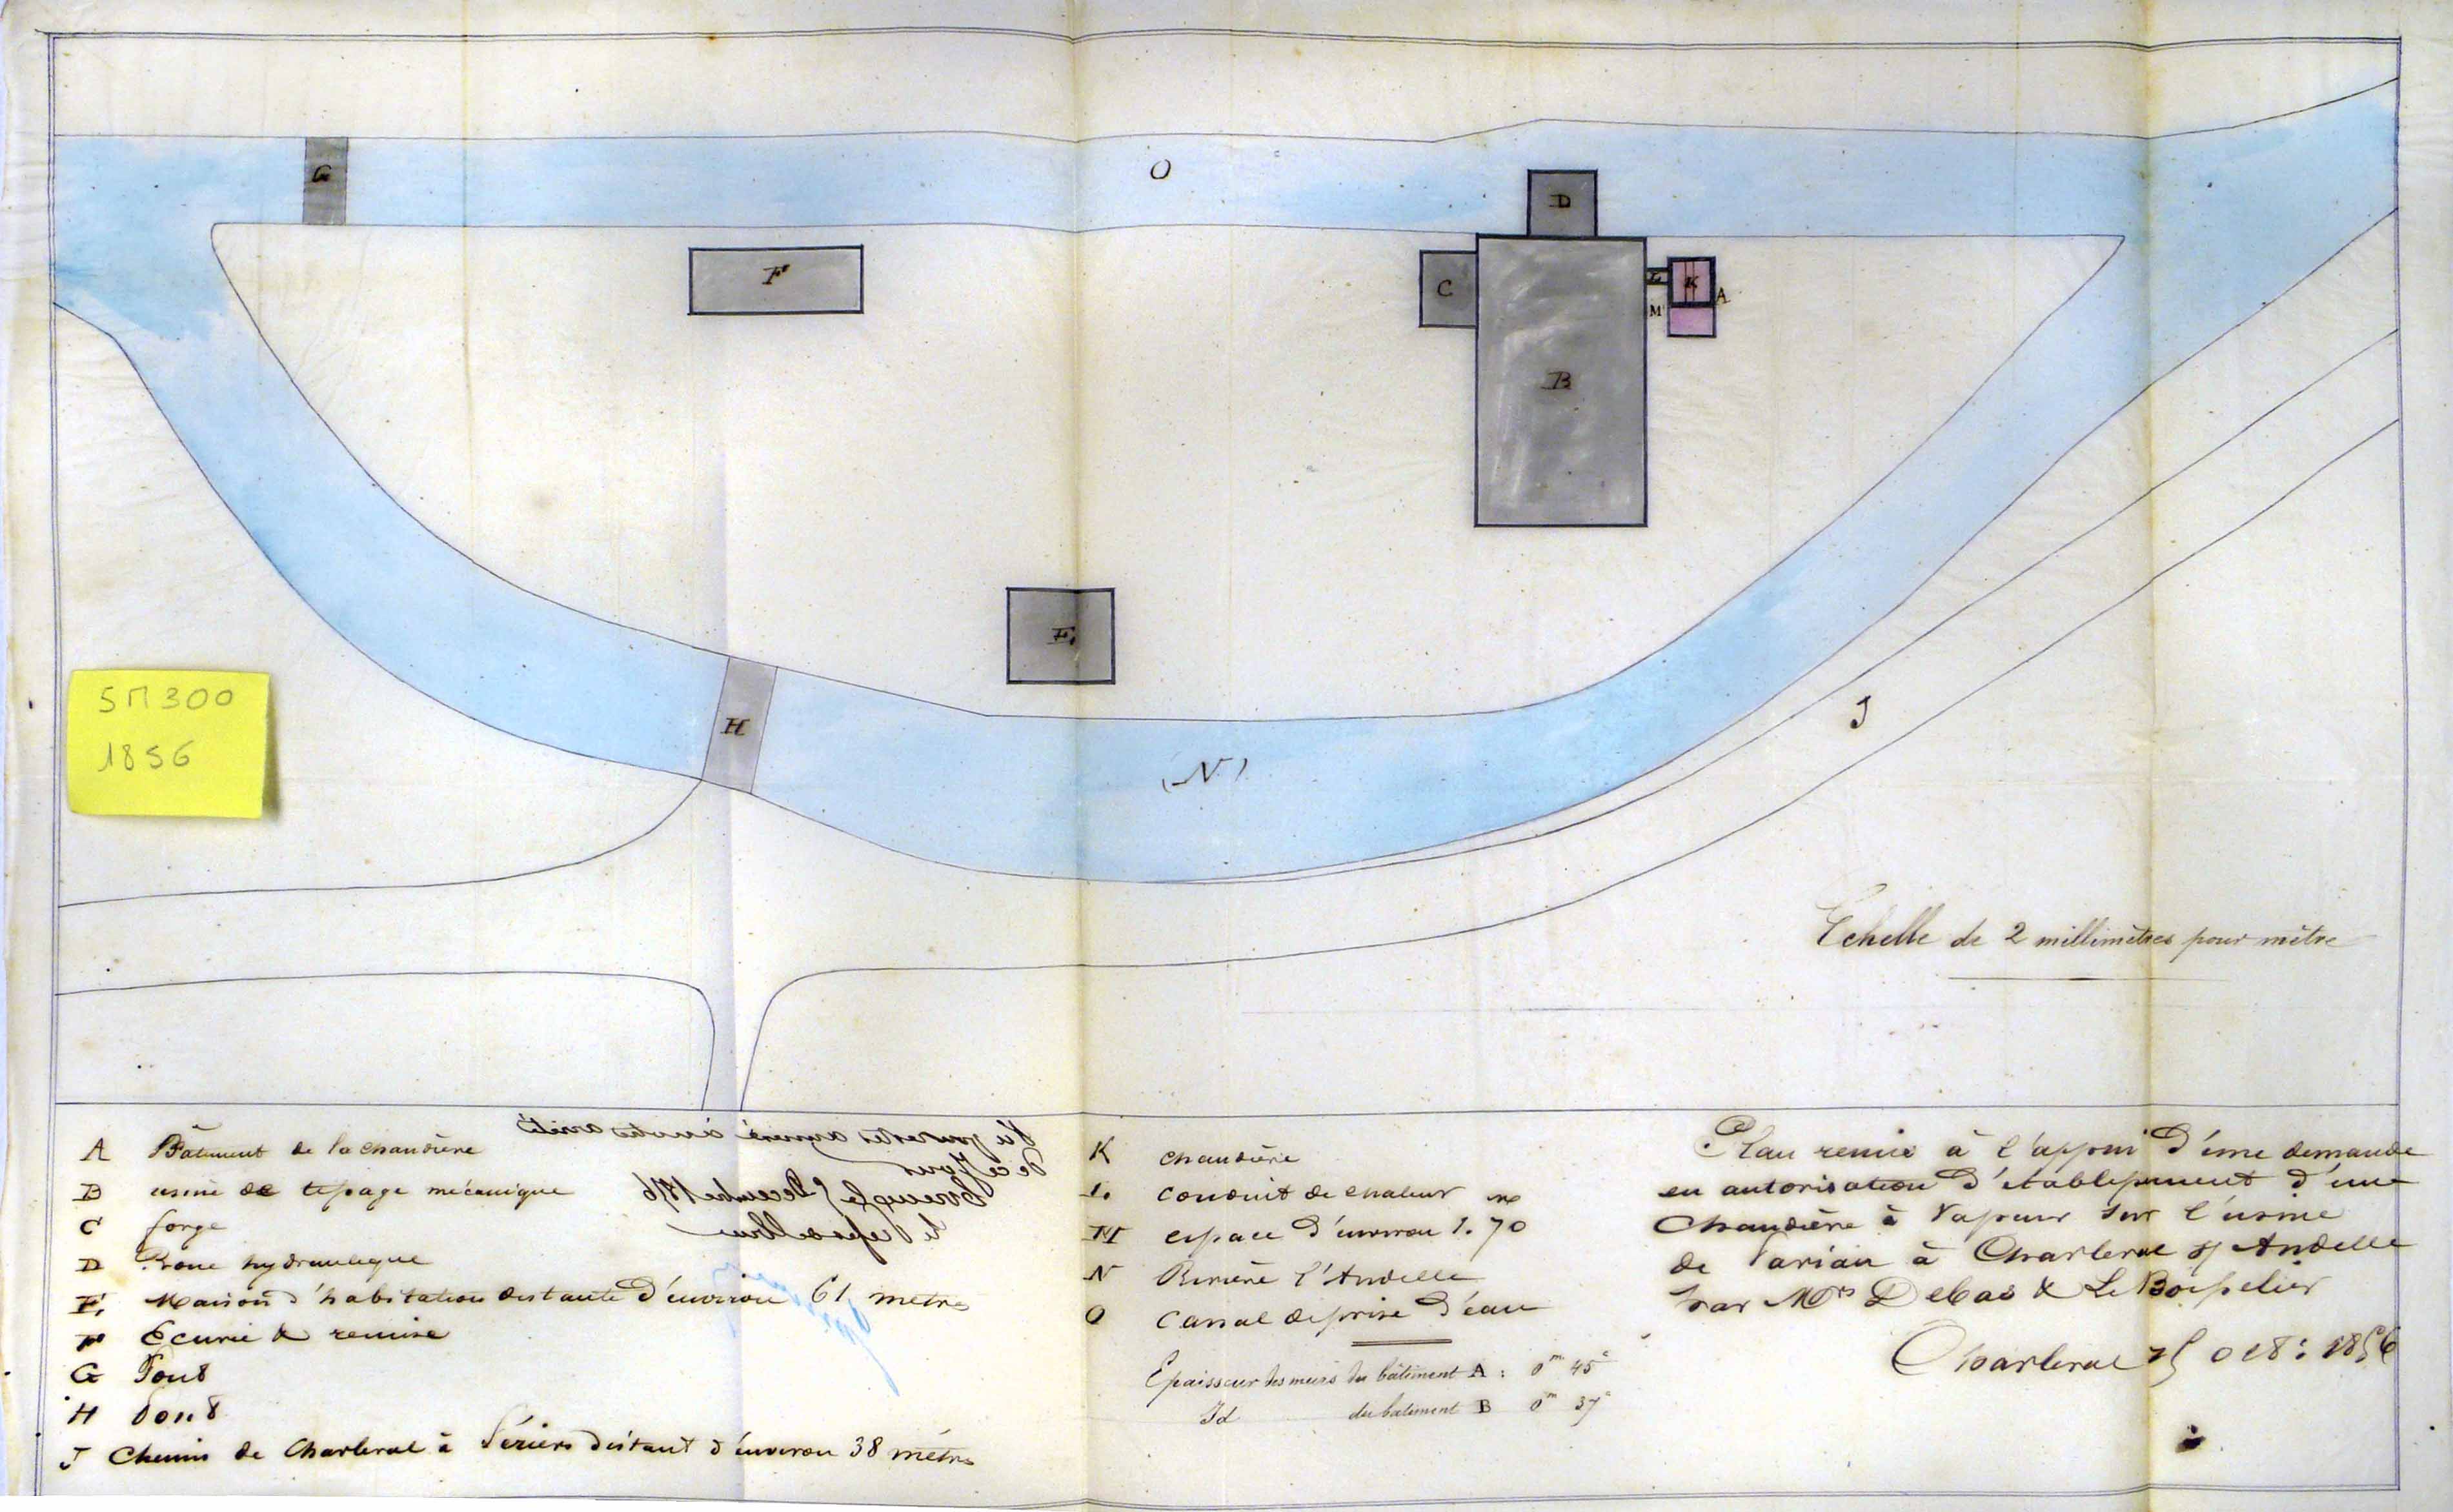 G
O
D
F
C
L
K
A
M
B
E.
5M300
1856
H
(N)
J
Echelle de 2 millimètres pour mètre
A Bâtiment de la chaudière
B usine de tissage mécanique
C forge
D Roue hydraulique
E. Maison d'habitation distante d'environ 61 mètres
F Ecurie & remise
G Pont
H Pont
J Chemin de Charleval à Périers distant d'environ 38 mètres
Vu pour être annexé à notre arrêté
de ce jour
Evreux, le Decembre 1856
le Préfet de l'Eure
K chaudière
L. conduit de chaleur
M espace d'environ 1.m70
N Rivière l'Andelle
O Canal de prise d'eau
Epaisseur des murs du bâtiment A : 0m 45c
Id du batiment B 0m 37c
Plan remis à l'appui d'une demande
en autorisation d'établissement d'une
Chaudière à Vapeur sur l'usine
de à Charleval s/ Andelle
par Mrs Debas & Le
Charleval 25 1856